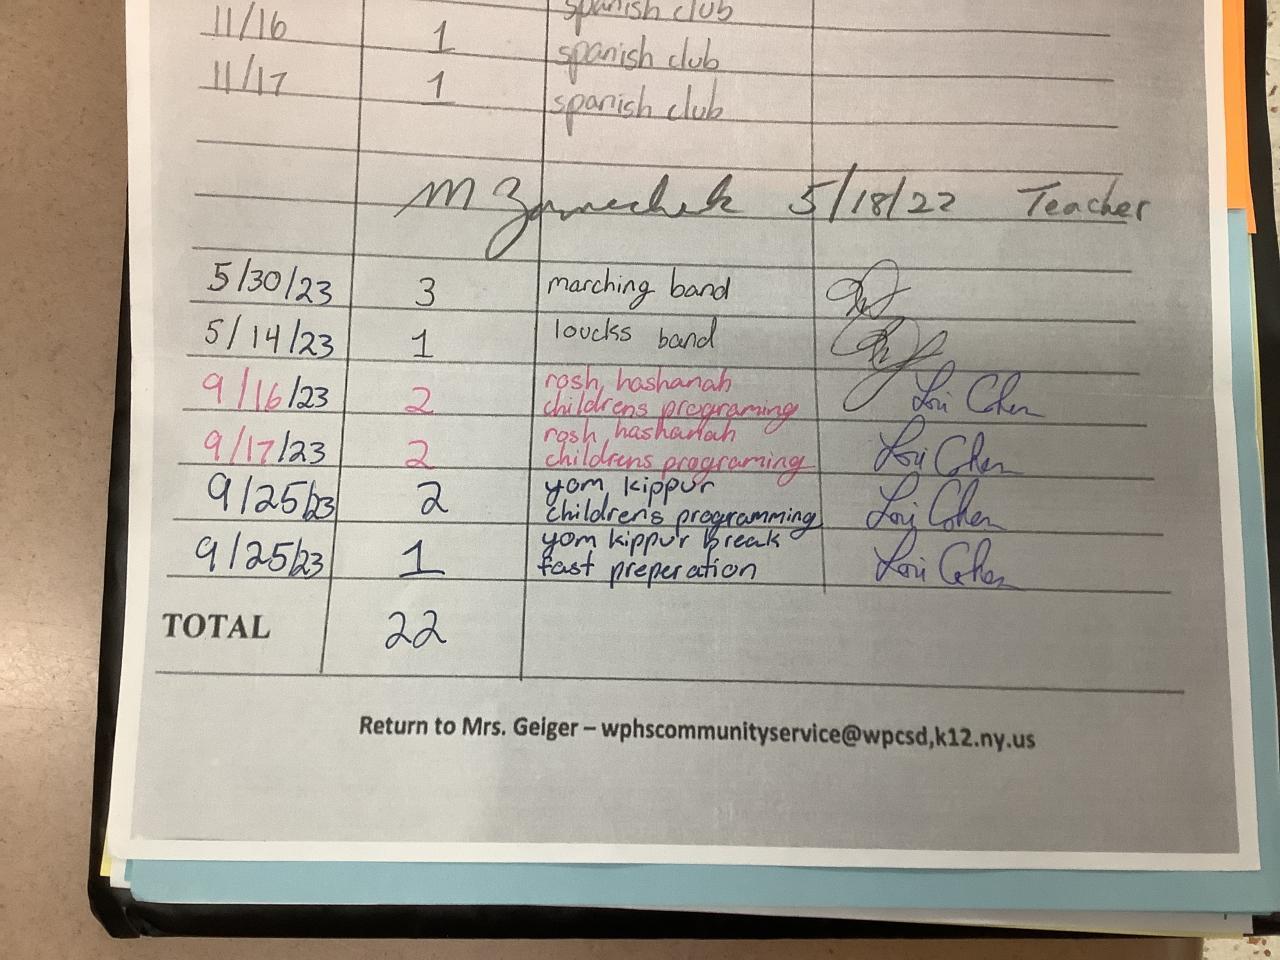 spanish club
11/16 1 spanish club
11/17 1 spanish club
M Zamechek 5/18/22 Teacher
5/30/23 3 marching band
5/14/23 1 loucks band
9/16/23 2 rosh hashanah
childrens programing Lori Cohen
9/17/23 2 rosh hashanah
childrens programing Lori Cohen
9/25/23 2 yom kippur
childrens programming Lori Cohen
9/25/23 1 yom kippur break
fast preperation Lori Cohen
TOTAL 22
Return to Mrs. Geiger – wphscommunityservice@wpcsd,k12.ny.us